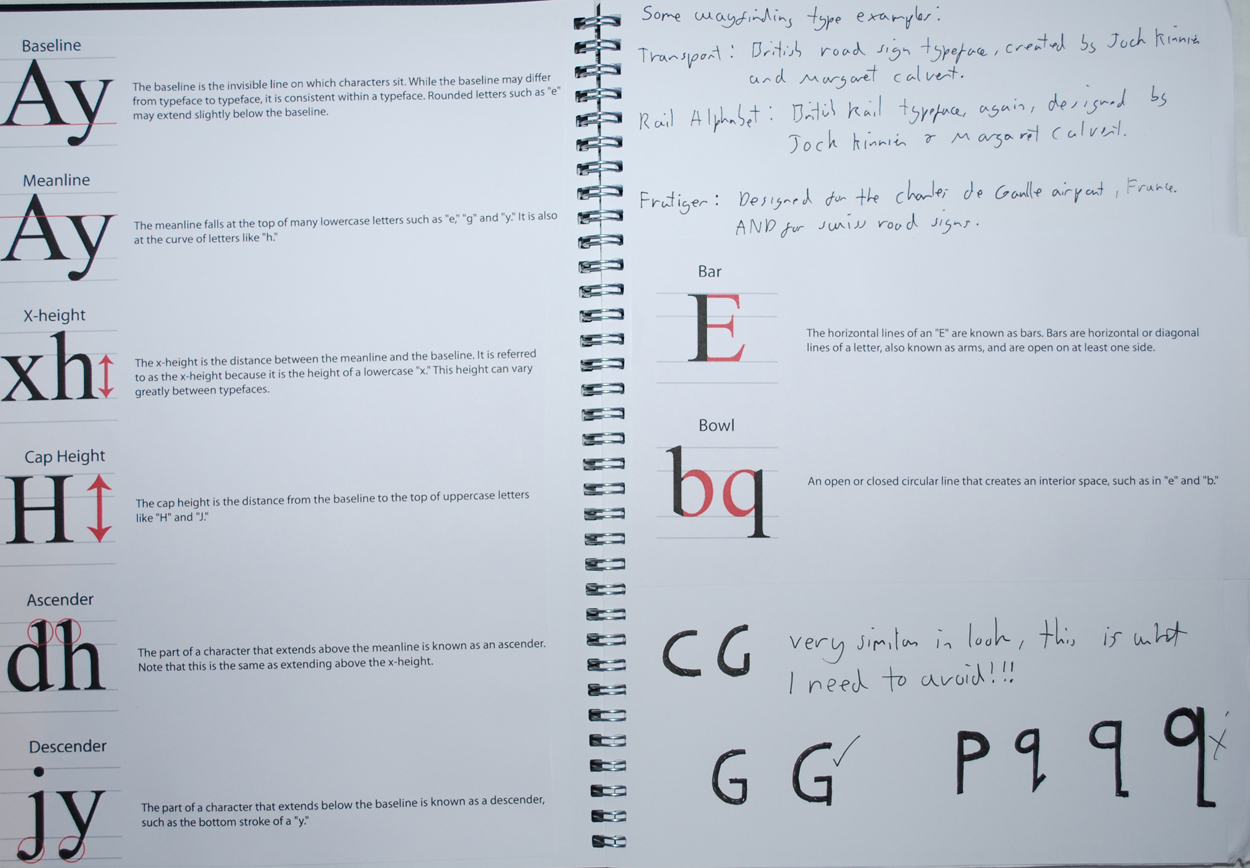 Baseline
Ay
The baseline is the invisible line on which characters sit. While the baseline may differ
from typeface to typeface, it is consistent within a typeface. Rounded letters such as "e"
may extend slightly below the baseline.
Meanline
Ay
The meanline falls at the top of many lowercase letters such as "e," "g" and "y." It is also
at the curve of letters like "h."
X-height
xh
The x-height is the distance between the meanline and the baseline. It is referred
to as the x-height because it is the height of a lowercase "x." This height can vary
greatly between typefaces.
Cap Height
H
The cap height is the distance from the baseline to the top of uppercase letters
like "H" and "J."
Ascender
dh
The part of a character that extends above the meanline is known as an ascender.
Note that this is the same as extending above the x-height.
Descender
jy
The part of a character that extends below the baseline is known as a descender,
such as the bottom stroke of a "y."
Some wayfinding type examples:
Transport: British road sign typeface, created by Jock Kinnier
and Margaret Calvert.
Rail Alphabet: British Rail typeface, again, designed by
Jock Kinnier & Margaret Calvert.
Frutiger: Designed for the Charles de Gaulle airport, France.
AND for swiss road signs.
Bar
E
The horizontal lines of an "E" are known as bars. Bars are horizontal or diagonal
lines of a letter, also known as arms, and are open on at least one side.
Bowl
bq
An open or closed circular line that creates an interior space, such as in "e" and "b."
C G very similar in look, this is what
I need to avoid!!!
G G✓ P q q q x